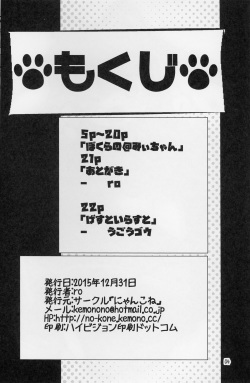 もくじ
5p~20p
「ぼくらの@みぃちゃん」
21p
「あとがき」
- ro
22p
「げすといらすと」
- うごうゴウ
発行日:2015年12月31日
発行者:ro
発行元:サークル「にゃんこね」
メール:kemonono@hotmail.co.jp
HP:http://no-kone.kemono.cc/
印刷:ハイピジョン印刷ドットコム